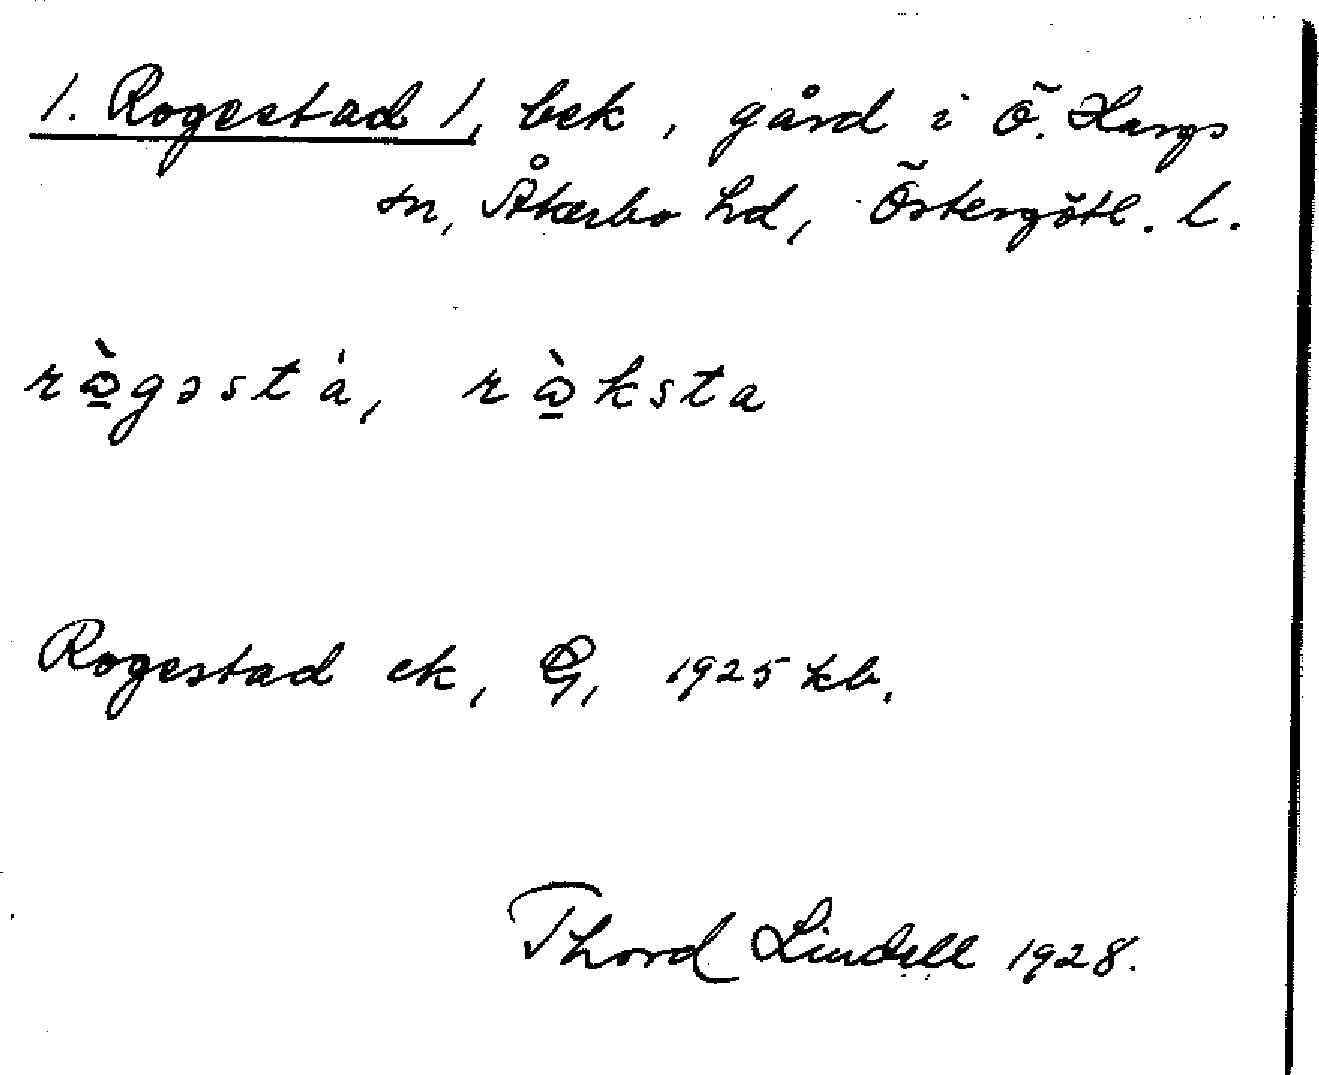 1. Rogestad 1, bek, gård i Ö. Hargs
sn, Åkerbo hd, Östergötl. l.
rə̀gəstá, rə̀ksta
Rogestad ek, G, 1925 kb.
Thord Lindell 1928.